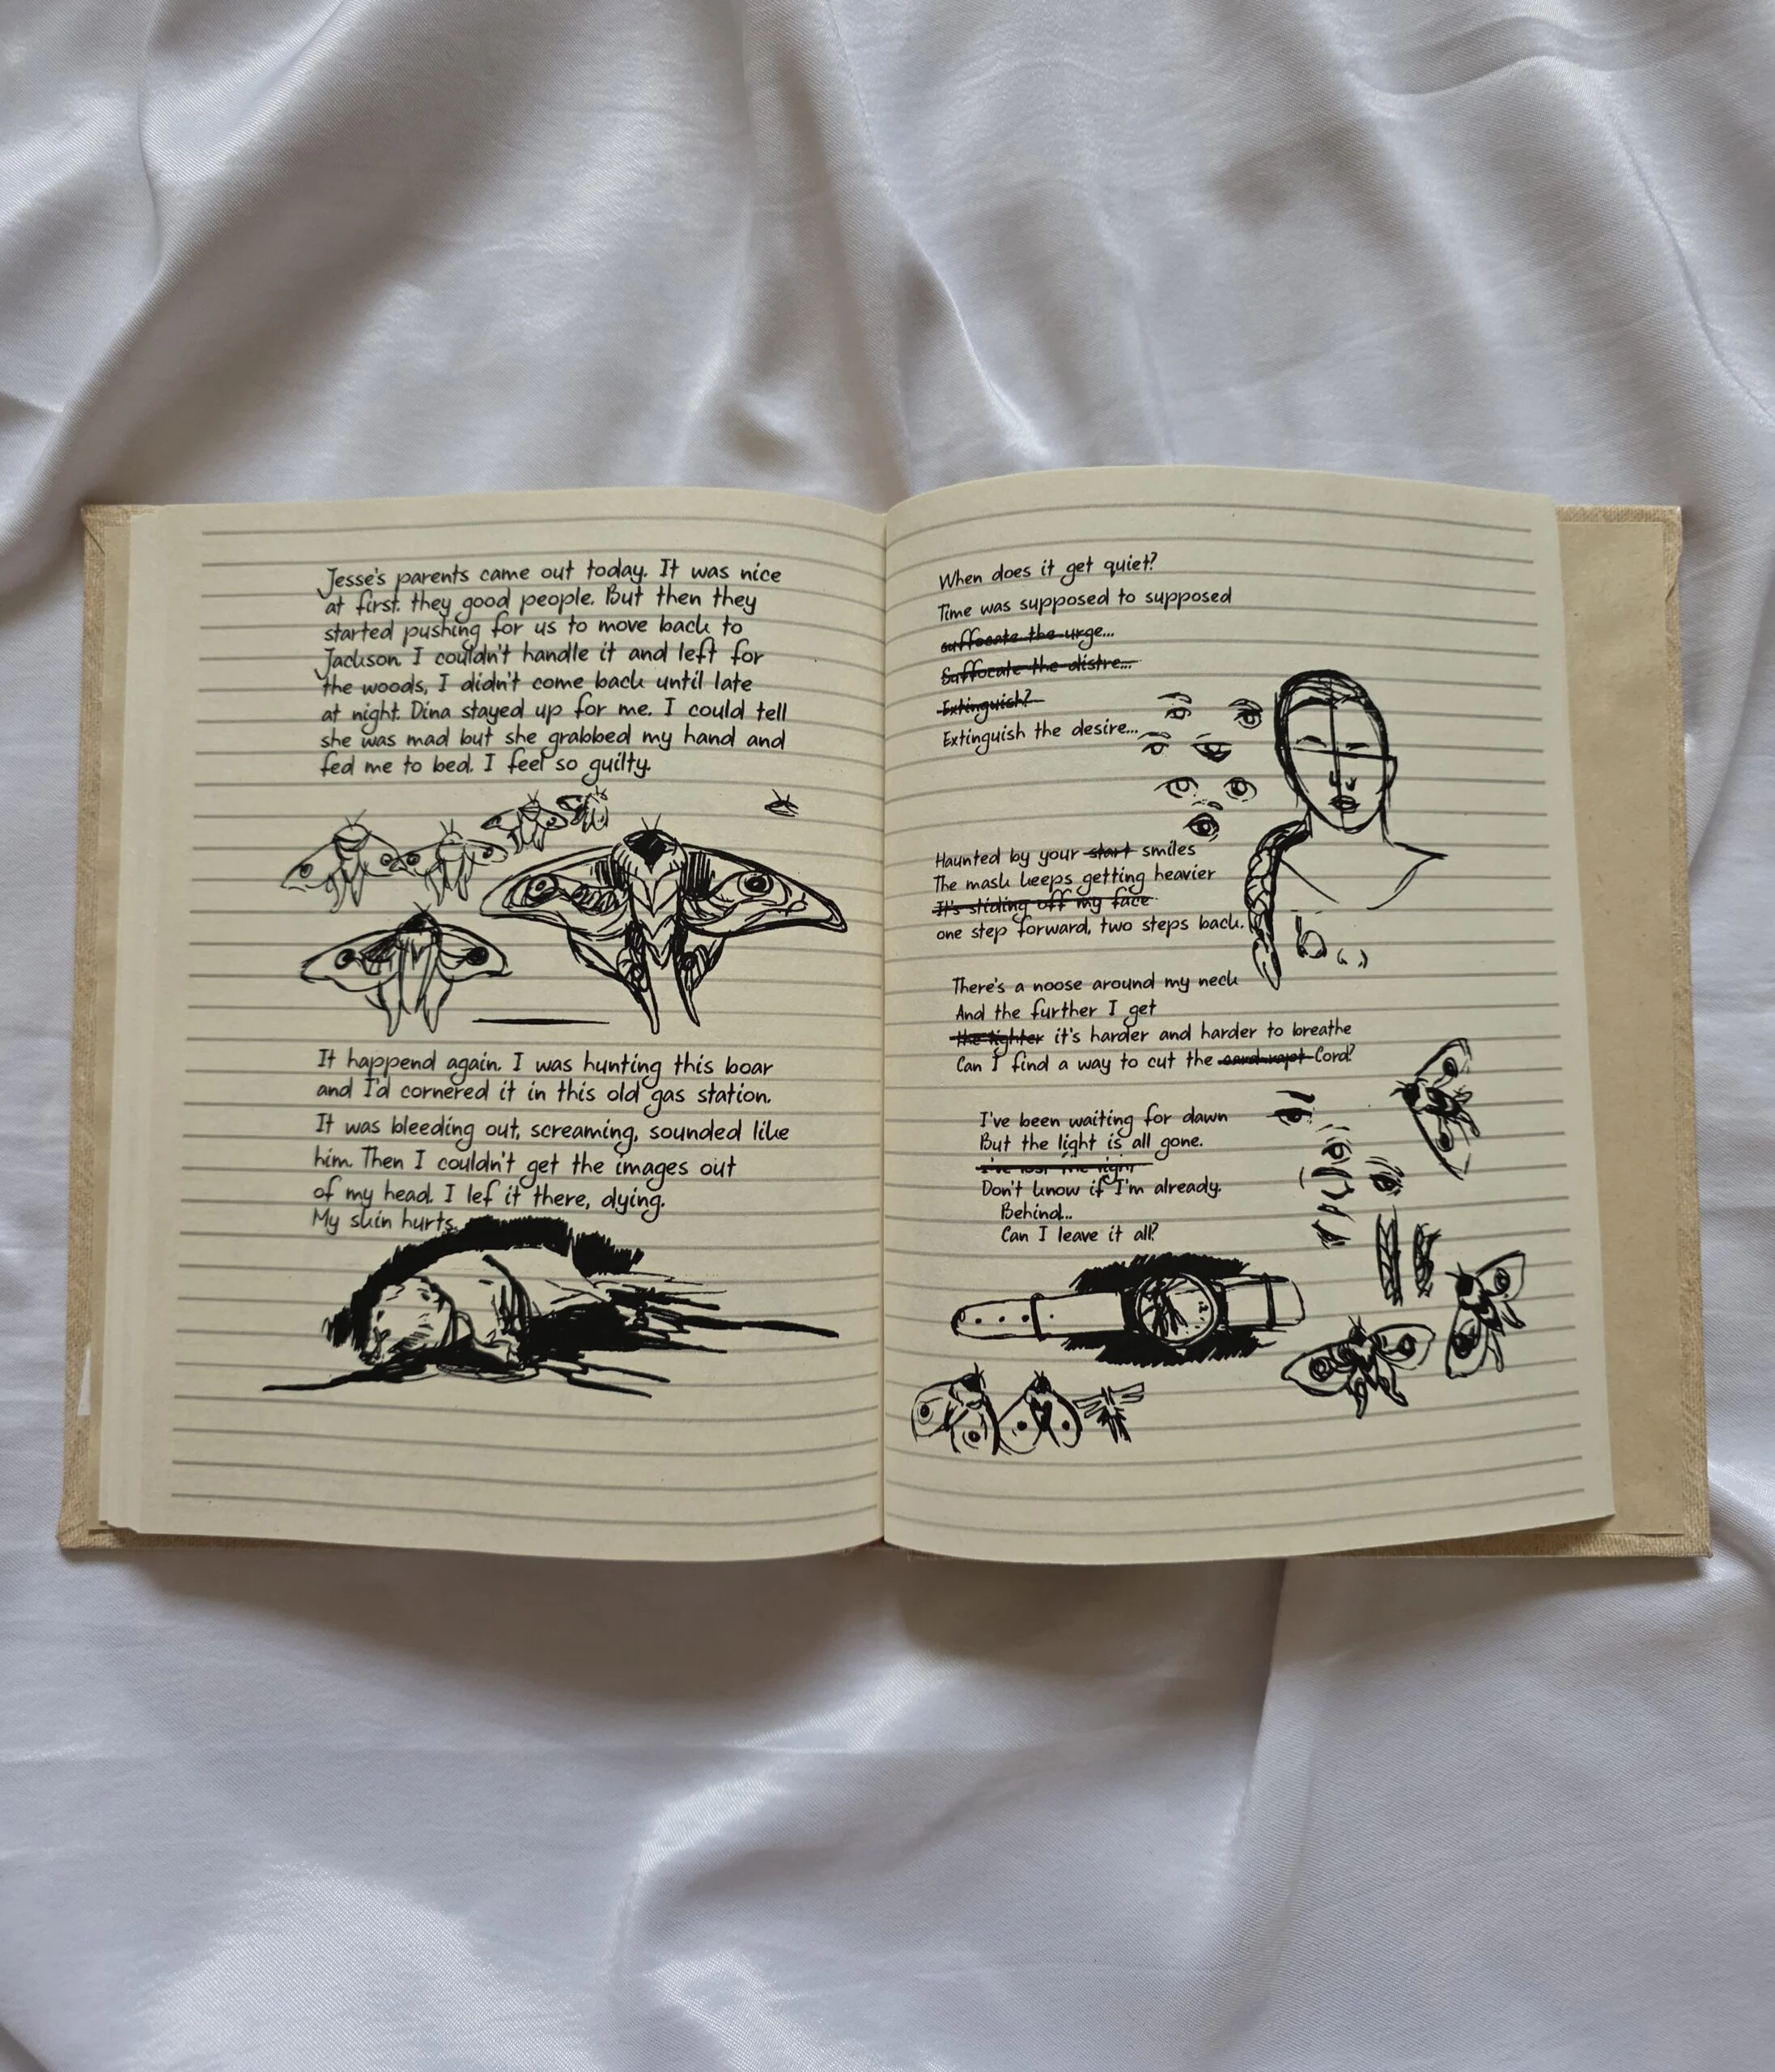 Jesse's parents came out today. It was nice
at first. they good people. But then they
started pushing for us to move back to
Jackson. I couldn't handle it and left for
the woods, I didn't come back until late
at night. Dina stayed up for me. I could tell
she was mad but she grabbed my hand and
fed me to bed. I feel so guilty.
It happend again. I was hunting this boar
and I'd cornered it in this old gas station.
It was bleeding out, screaming, sounded like
him. Then I couldn't get the images out
of my head. I lef it there, dying.
My skin hurts.
When does it get quiet?
Time was supposed to supposed
suffocate the urge...
Suffocate the distre...
Extinguish?
Extinguish the desire...
Haunted by your start smiles
The mask keeps getting heavier
It's sliding off my face
one step forward, two steps back.
There's a noose around my neck
And the further I get
the tighter it's harder and harder to breathe
Can I find a way to cut the Cord?
I've been waiting for dawn
But the light is all gone.
I've lost the light
Don't know if I'm already.
Behind...
Can I leave it all?